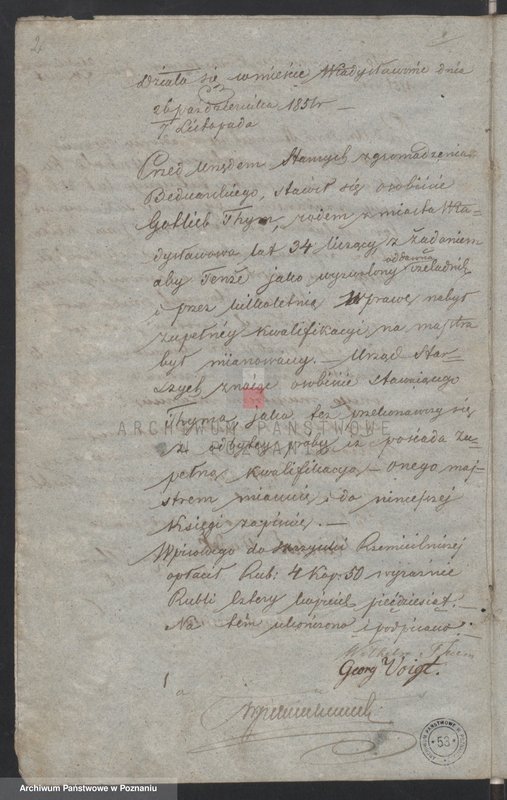 2.
Działo się w mieście Władysławowie dnia
26 października 1851 r —
7 Listopada
Przed Urzędem Starszych zgromadzenia
Bednarskiego, stawił się osobiście
Gotlieb Thym, rodem z miasta Wła-
dysławowa lat 34 liczący z żądaniem
aby Tenże jako wyzwolony oddawna czeladnik
i przez kilkoletnią wprawę nabył
zupełney kwalifikacyi na majstra
był mianowany. — Urząd Star-
szych znając osobiście stawaiącego
Thyma jako też przekonawszy się
z odbytey próby iż posiada zu-
pełną kwalifikacyą — onego maj-
strem mianuie i do ninieyszej
Księgi zapisuie. —
Wpisowego do Rzemieślniczej
opłacił Rub: 4 Kop: 50 wyraźnie
Rubli cztery kopiejek pięćdziesiąt. —
Na tém ukończono i podpisano.
Wilhelm Thiem
Georg Voigt.
ARCHIWUM PAŃSTWOWE
W POZNANIU
ARCHIWUM PAŃSTWOWE W POZNANIU
53
Archiwum Państwowe w Poznaniu